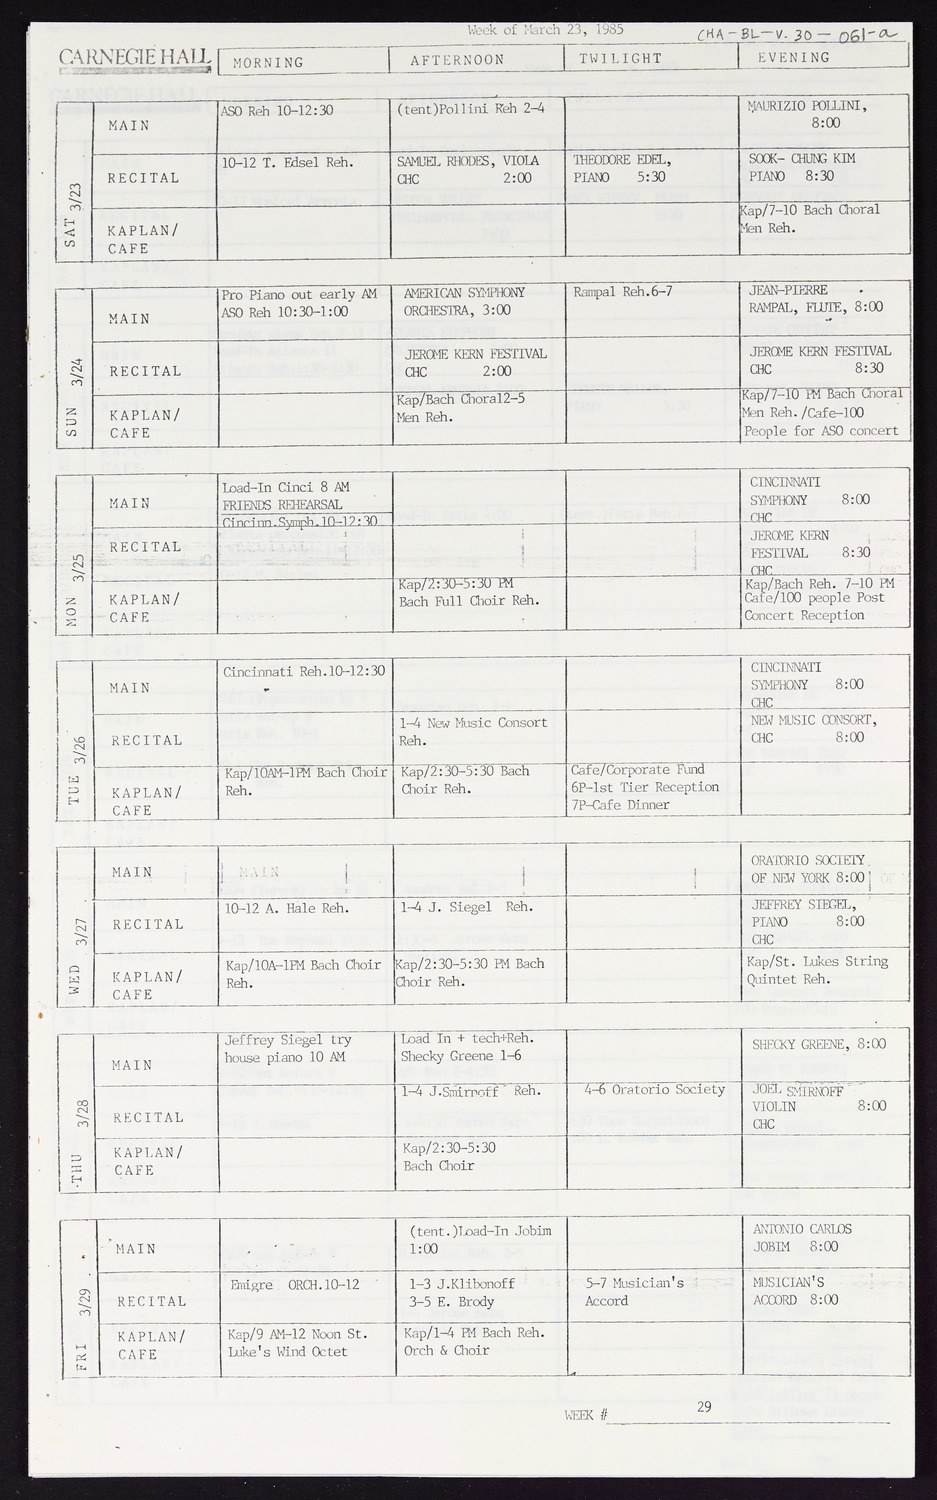 Week of March 23, 1985
CHA-BL-V. 30 - 061-a
CARNEGIE HALL
MORNING
AFTERNOON
TWILIGHT
EVENING
SAT 3/23
MAIN
ASO Reh 10-12:30
(tent)Pollini Reh 2-4
MAURIZIO POLLINI,
8:00
RECITAL
10-12 T. Edsel Reh.
SAMUEL RHODES, VIOLA
CHC 2:00
THEODORE EDEL,
PIANO 5:30
SOOK- CHUNG KIM
PIANO 8:30
KAPLAN/
CAFE
Kap/7-10 Bach Choral
Men Reh.
SUN 3/24
MAIN
Pro Piano out early AM
ASO Reh 10:30-1:00
AMERICAN SYMPHONY
ORCHESTRA, 3:00
Rampal Reh.6-7
JEAN-PIERRE
RAMPAL, FLUTE, 8:00
RECITAL
JEROME KERN FESTIVAL
CHC 2:00
JEROME KERN FESTIVAL
CHC 8:30
KAPLAN/
CAFE
Kap/Bach Choral2-5
Men Reh.
Kap/7-10 PM Bach Choral
Men Reh./Cafe-100
People for ASO concert
MON 3/25
MAIN
Load-In Cinci 8 AM
FRIENDS REHEARSAL
Cincinn.Symph.10-12:30
CINCINNATI
SYMPHONY 8:00
CHC
RECITAL
JEROME KERN
FESTIVAL 8:30
CHC
KAPLAN/
CAFE
Kap/2:30-5:30 PM
Bach Full Choir Reh.
Kap/Bach Reh. 7-10 PM
Cafe/100 people Post
Concert Reception
TUE 3/26
MAIN
Cincinnati Reh.10-12:30
CINCINNATI
SYMPHONY 8:00
CHC
RECITAL
1-4 New Music Consort
Reh.
NEW MUSIC CONSORT,
CHC 8:00
KAPLAN/
CAFE
Kap/10AM-1PM Bach Choir
Reh.
Kap/2:30-5:30 Bach
Choir Reh.
Cafe/Corporate Fund
6P-1st Tier Reception
7P-Cafe Dinner
WED 3/27
MAIN
MAIN
ORATORIO SOCIETY
OF NEW YORK 8:00
RECITAL
10-12 A. Hale Reh.
1-4 J. Siegel Reh.
JEFFREY SIEGEL,
PIANO 8:00
CHC
KAPLAN/
CAFE
Kap/10A-1PM Bach Choir
Reh.
Kap/2:30-5:30 PM Bach
Choir Reh.
Kap/St. Lukes String
Quintet Reh.
THU 3/28
MAIN
Jeffrey Siegel try
house piano 10 AM
Load In + tech+Reh.
Shecky Greene 1-6
SHECKY GREENE, 8:00
RECITAL
1-4 J.Smirnoff Reh.
4-6 Oratorio Society
JOEL SMIRNOFF
VIOLIN 8:00
CHC
KAPLAN/
CAFE
Kap/2:30-5:30
Bach Choir
FRI 3/29
MAIN
(tent.)Load-In Jobim
1:00
ANTONIO CARLOS
JOBIM 8:00
RECITAL
Emigre ORCH.10-12
1-3 J.Klibonoff
3-5 E. Brody
5-7 Musician's
Accord
MUSICIAN'S
ACCORD 8:00
KAPLAN/
CAFE
Kap/9 AM-12 Noon St.
Luke's Wind Octet
Kap/1-4 PM Bach Reh.
Orch & Choir
WEEK # 29